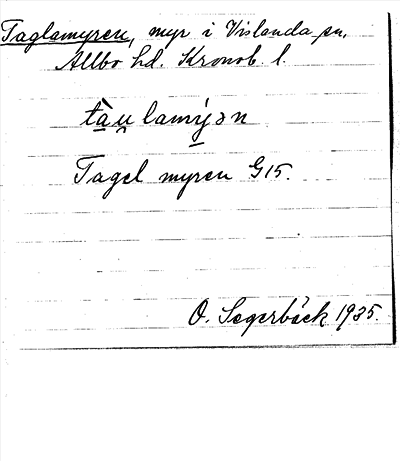 Taglamyren, myr i Vislanda sn,
Allbo hd. Kronob. l.
tàu̯lamýən
Tagel myren G15.
O. Segerbäck 1935.